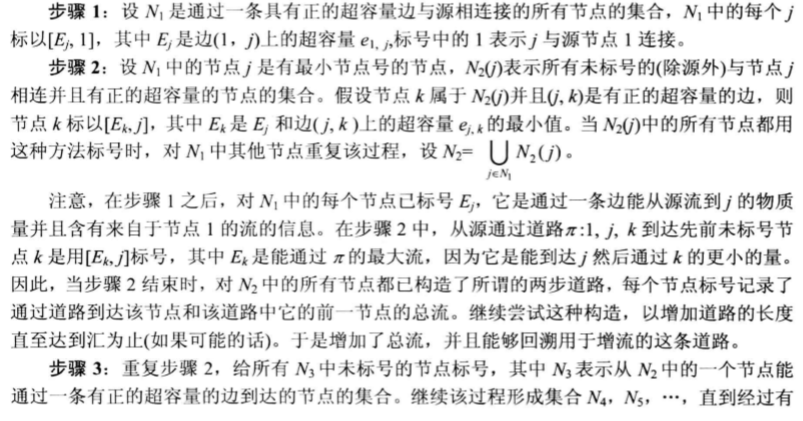 步骤 1：设 N₁ 是通过一条具有正的超容量边与源相连接的所有节点的集合，N₁ 中的每个 j
标以[Eⱼ, 1]，其中 Eⱼ 是边(1，j)上的超容量 e₁, ⱼ,标号中的 1 表示 j 与源节点 1 连接。
步骤 2：设 N₁ 中的节点 j 是有最小节点号的节点，N₂(j)表示所有未标号的(除源外)与节点 j
相连并且有正的超容量的节点的集合。假设节点 k 属于 N₂(j)并且(j, k)是有正的超容量的边，则
节点 k 标以[Eₖ, j]，其中 Eₖ 是 Eⱼ 和边( j, k )上的超容量 eⱼ, ₖ 的最小值。当 N₂(j)中的所有节点都用
这种方法标号时，对 N₁ 中其他节点重复该过程，设 N₂= ⋃ N₂ ( j ) 。
j∈N₁
注意，在步骤 1 之后，对 N₁ 中的每个节点已标号 Eⱼ，它是通过一条边能从源流到 j 的物质
量并且含有来自于节点 1 的流的信息。在步骤 2 中，从源通过道路π:1, j, k 到达先前未标号节
点 k 是用[Eₖ, j]标号，其中 Eₖ 是能通过 π 的最大流，因为它是能到达 j 然后通过 k 的更小的量。
因此，当步骤 2 结束时，对 N₂ 中的所有节点都已构造了所谓的两步道路，每个节点标号记录了
通过道路到达该节点和该道路中它的前一节点的总流。继续尝试这种构造，以增加道路的长度
直至达到汇为止(如果可能的话)。于是增加了总流，并且能够回溯用于增流的这条道路。
步骤 3：重复步骤 2，给所有 N₃ 中未标号的节点标号，其中 N₃ 表示从 N₂ 中的一个节点能
通过一条有正的超容量的边到达的节点的集合。继续该过程形成集合 N₄，N₅，…，直到经过有